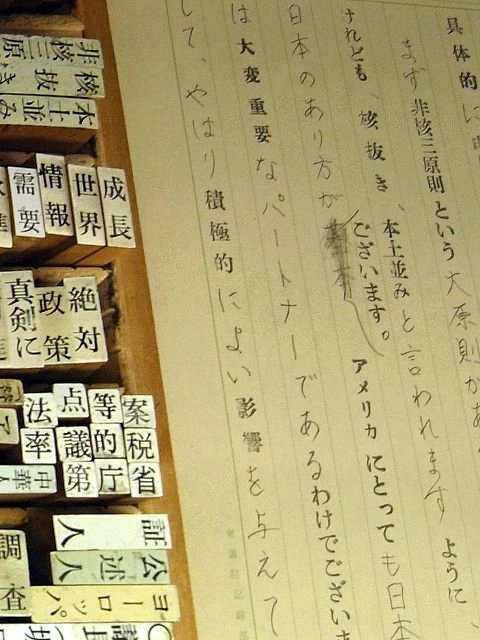 具体的に
まず非核三原則という大原則があ
けれども、核抜き、本土並みと言われますように、
日本のあり方がございます。アメリカにとっても日本
は大変重要なパートナーであるわけでございま
して、やはり積極的によい影響を与えて
非核三原
核抜き
本土並み
成長
世界
情報
需要
絶対
政策
真剣に
案
等
点
法
税
的
議
率
省
庁
第
中華人
証人
公述人
ヨーロッパ
調査
衆議院記録部